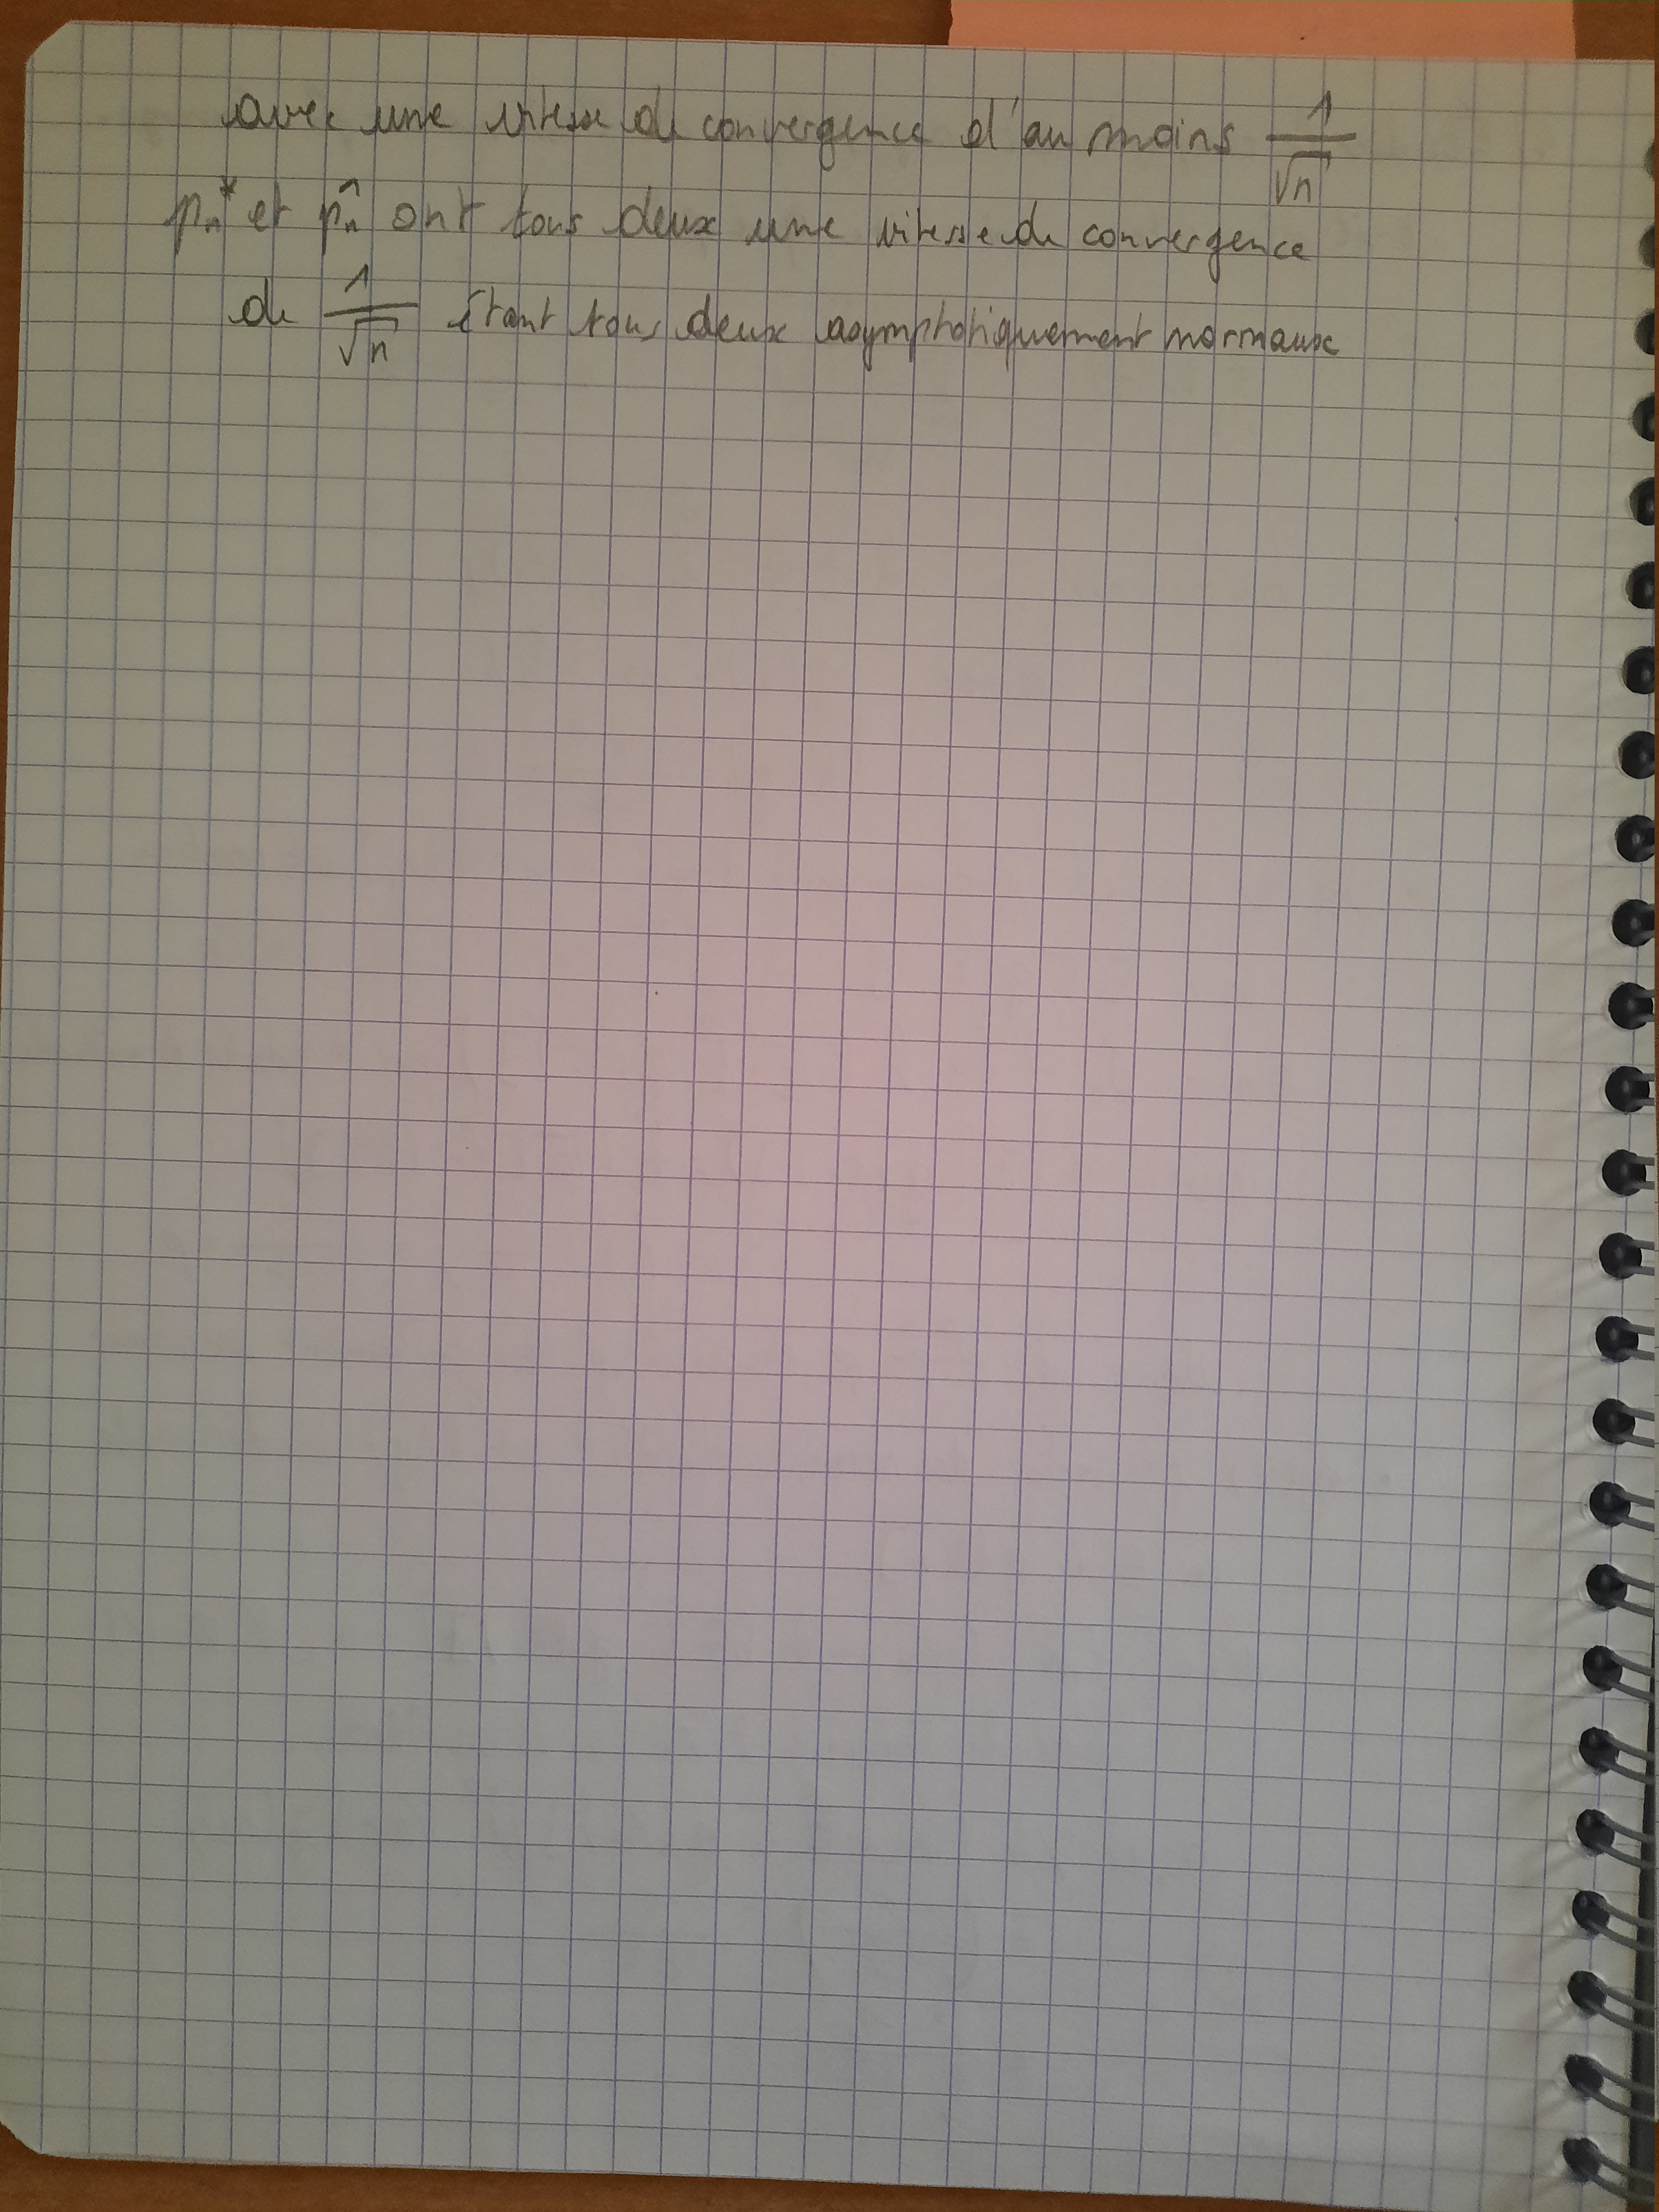 avec une vitesse de convergence d'au moins 1/√n
pn* et p̂n ont tous deux une vitesse de convergence
de 1/√n étant tous deux asymptotiquement normaux